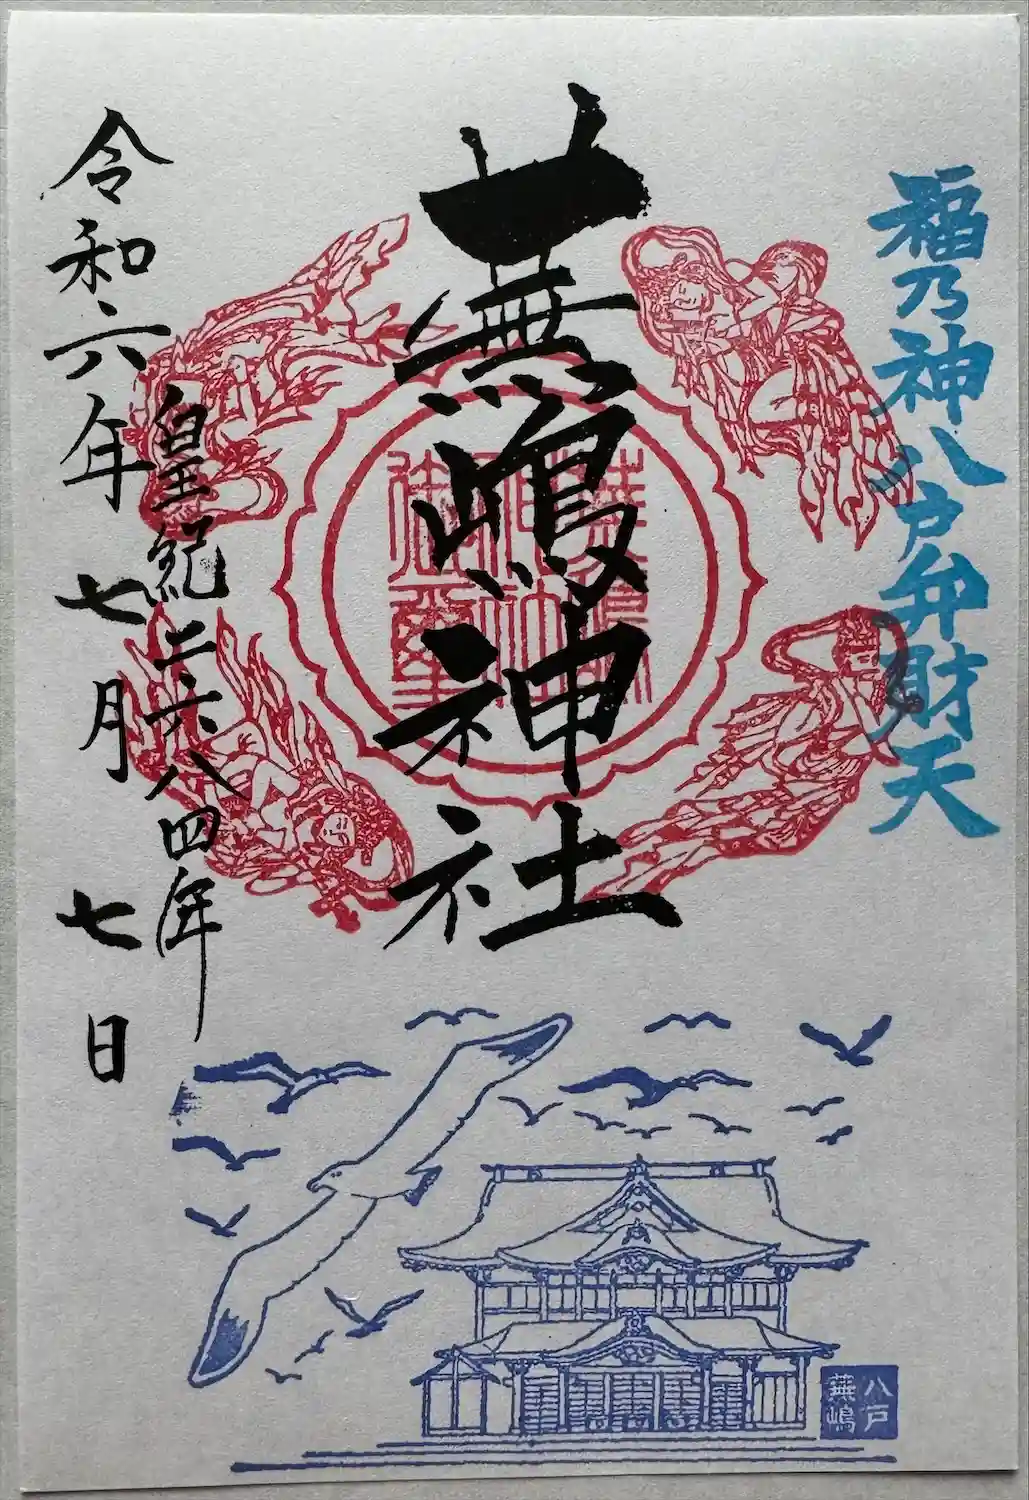 福乃神八戸弁財天
蕪嶋神社
皇紀二六八四年
令和六年 七月 七日
八戸
蕪嶋